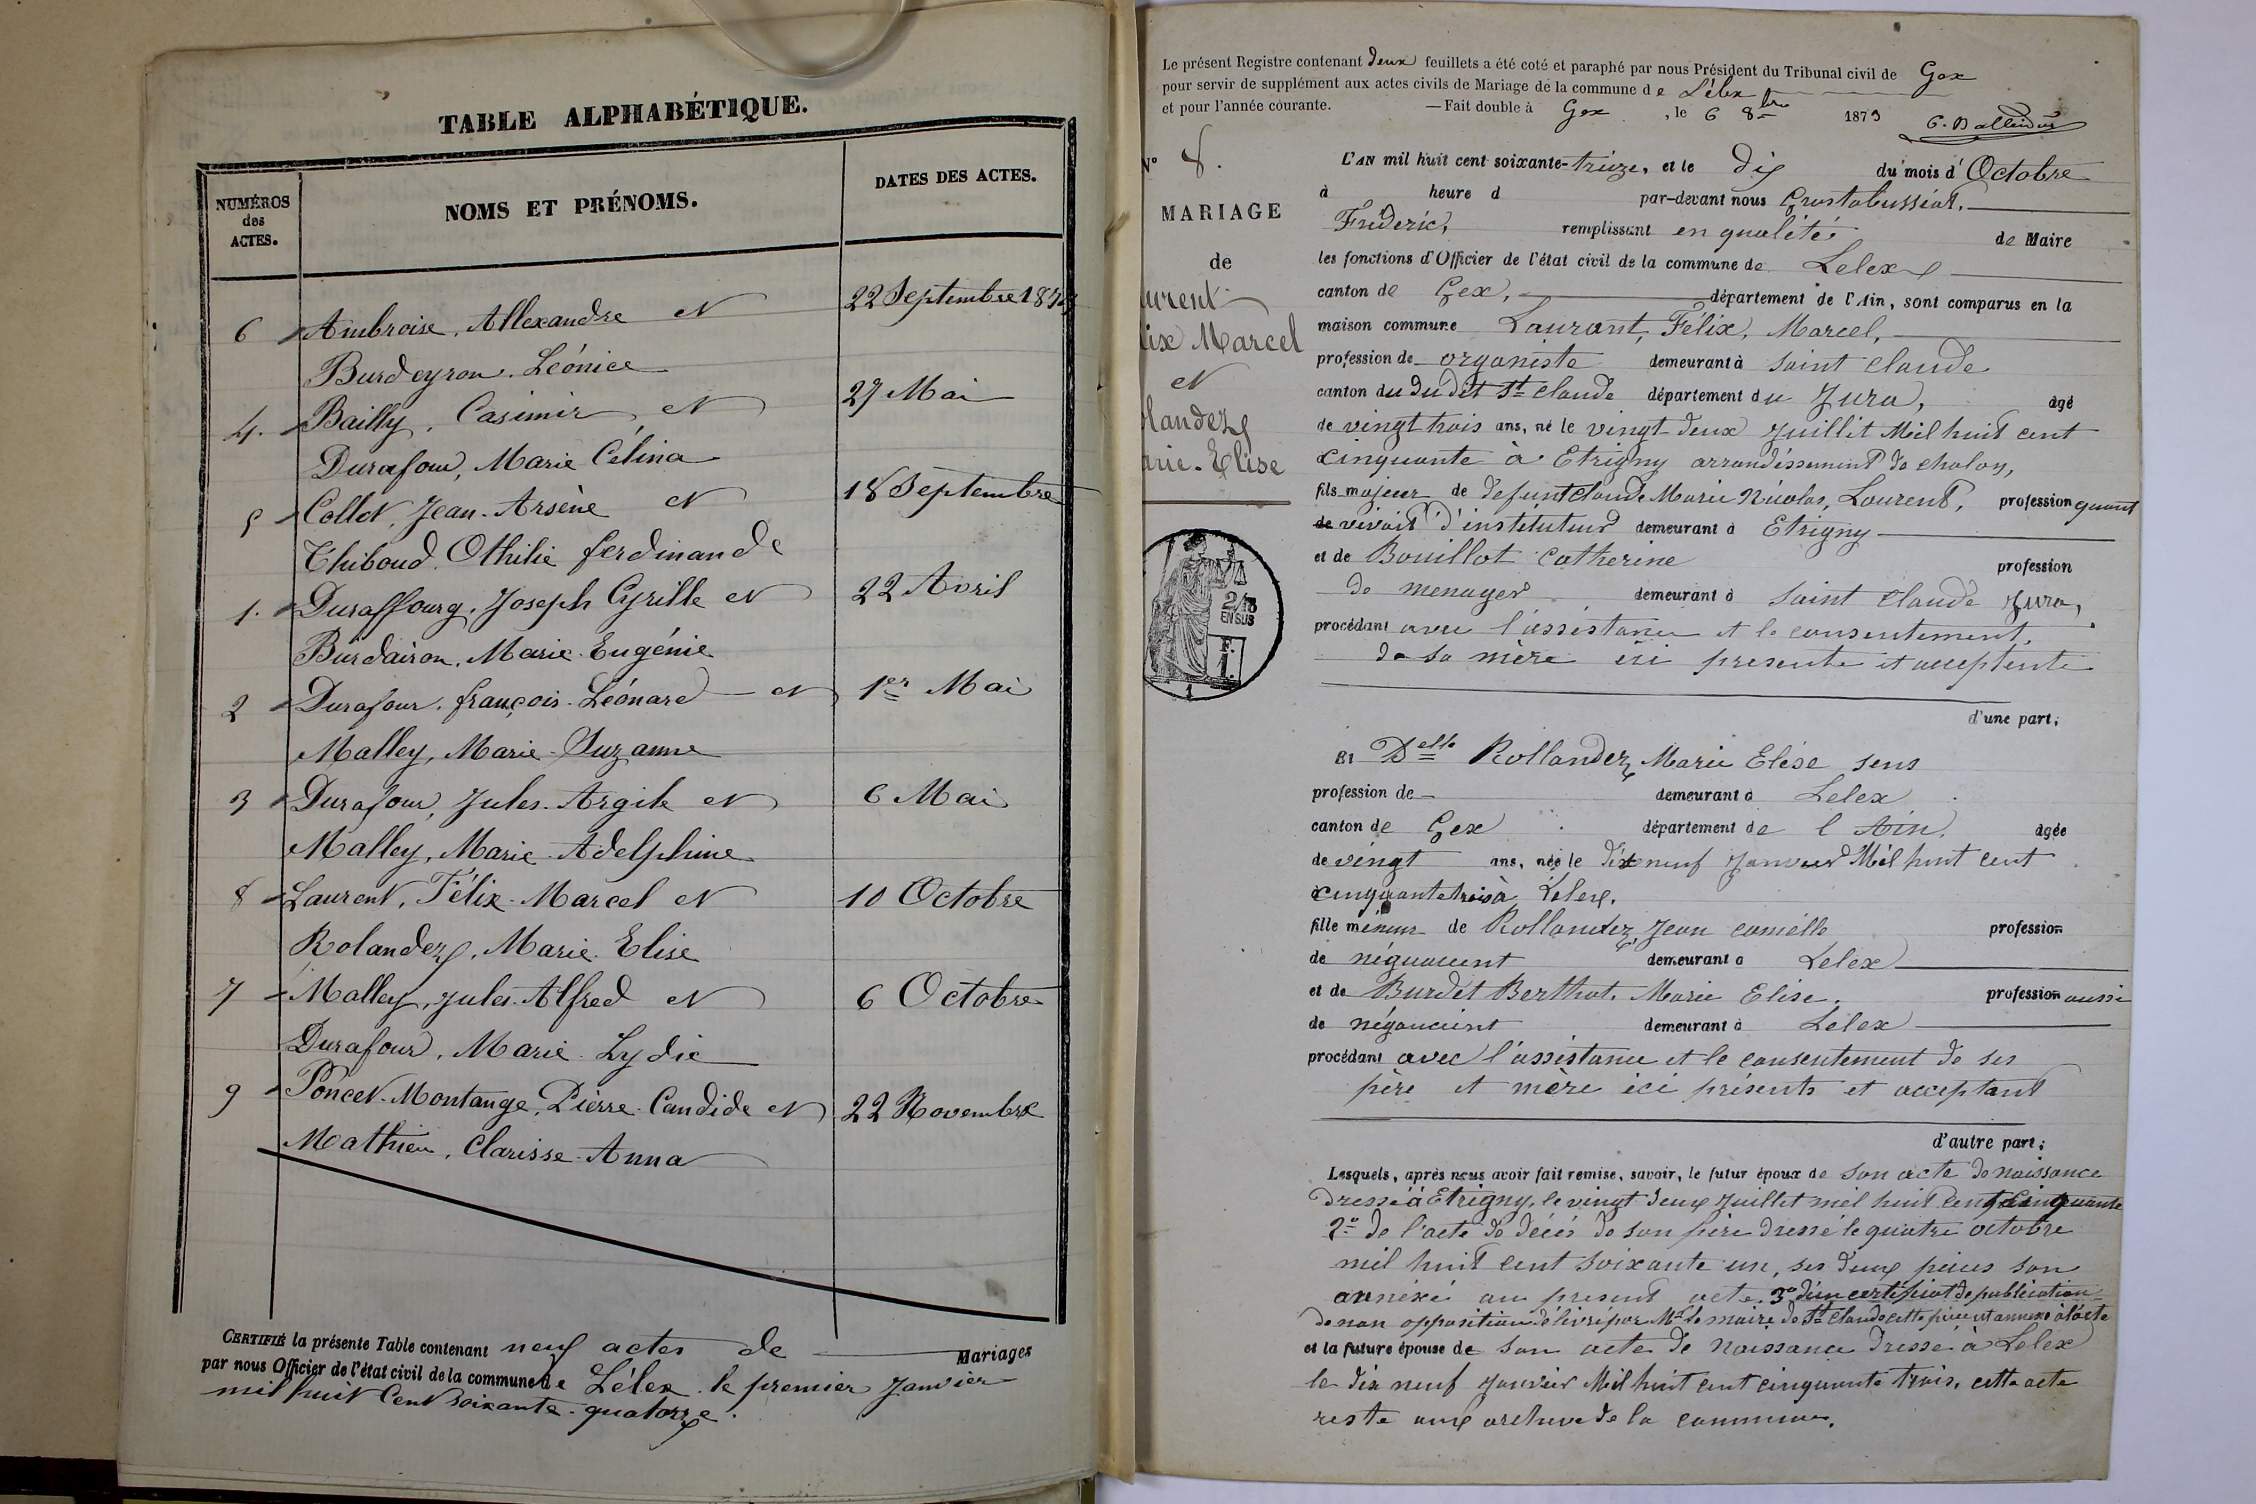 TABLE ALPHABÉTIQUE.
NUMÉROS
des
ACTES.
NOMS ET PRÉNOMS.
DATES DES ACTES.
6 Ambroise, Allexandre et 22 Septembre 1873
Burdeyron, Léonice
4. Bailly, Casimir, et 27 Mai
Durafour, Marie Célina
5 Collet, Jean-Arsène et 18 Septembre
Thiboud, Othilie ferdinande
1. Duraffourg, Joseph Cyrille et 22 Avril
Burdairon, Marie-Eugénie
2 Durafour, françois-Léonard et 1er Mai
Malley, Marie-Suzanne
3 Durafour, Jules-Argile et 6 Mai
Malley, Marie-Adelphine
8 Laurent, Félix-Marcel et 10 Octobre
Rolandez, Marie-Elise
7 Malley, Jules-Alfred et 6 Octobre
Durafour, Marie-Lydie
9 Poncet-Montange, Pierre-Candide et 22 Novembre
Mathieu, Clarisse-Anna
CERTIFIÉ la présente Table contenant neuf actes de Mariages
par nous Officier de l'état civil de la commune de Lélex le premier Janvier
mil huit Cent soixante-quatorze.
Le présent Registre contenant deux feuillets a été coté et paraphé par nous Président du Tribunal civil de Gex
pour servir de supplément aux actes civils de Mariage de la commune de Lélex
et pour l'année courante. —Fait double à Gex, le 6 8bre 1873
N° 8.
MARIAGE
de
aurent
lix Marcel
et
olandez
arie-Elise
2/10
EN SUS
F.
1.
1
L'AN mil huit cent soixante-treize, et le dix du mois d'Octobre
à heure d par-devant nous Grostabussiat,
Fréderic, remplissant en qualité de Maire
les fonctions d'Officier de l'état civil de la commune de Lelex
canton de Gex, département de l'Ain, sont comparus en la
maison commune Laurant, Félix, Marcel,
profession de organiste demeurant à saint claude
canton du du dit St claude département du Jura, agé
de vingt trois ans, né le vingt-deux Juillet Mil huit cent
cinquante à Etrigny arrondissement de chalon,
fils majeur de defunt claude Marie Nicolas, Laurent, profession quant
de vivait d'instituteur demeurant à Etrigny
et de Bouillot catherine profession
de menager demeurant à saint claude Jura,
procédant avec l'assistance et le consentement,
de sa mère ici presente et acceptente
d'une part;
Et Delle Rollandez Marie Elise sens
profession de demeurant à Lelex
canton de Gex département de l'Ain, agée
de vingt ans, née le dix neuf Janvier Mil huit cent
cinquante trois à Lelex.
fille mineur de Rollandez, Jean camille profession
de négociant demeurant à Lelex
et de Burdet Berthot, Marie Elise, profession aussi
de négociant demeurant à Lelex
procédant avec l'assistance et le consentement de ses
père et mère ici présents et acceptant
d'autre part;
Lesquels, après nous avoir fait remise, savoir, le futur époux de son acte de naissance
dressé à Etrigny, le vingt deux Juillet mil huit cent cinquante
2° de l'acte de décès de son père dressé le quatre octobre
mil huit cent soixante un, ses deux pièces son
annéxé au present acte. 3° d'un certificat de publication
de non opposition délivré par Mr le maire de St Claude cette pièce est annexé à l'acte
et la future épouse de son acte de naissance dressé à Lelex
le dix neuf Janvier Mil huit cent cinquante trois, cette acte
reste aux archive de la commune.